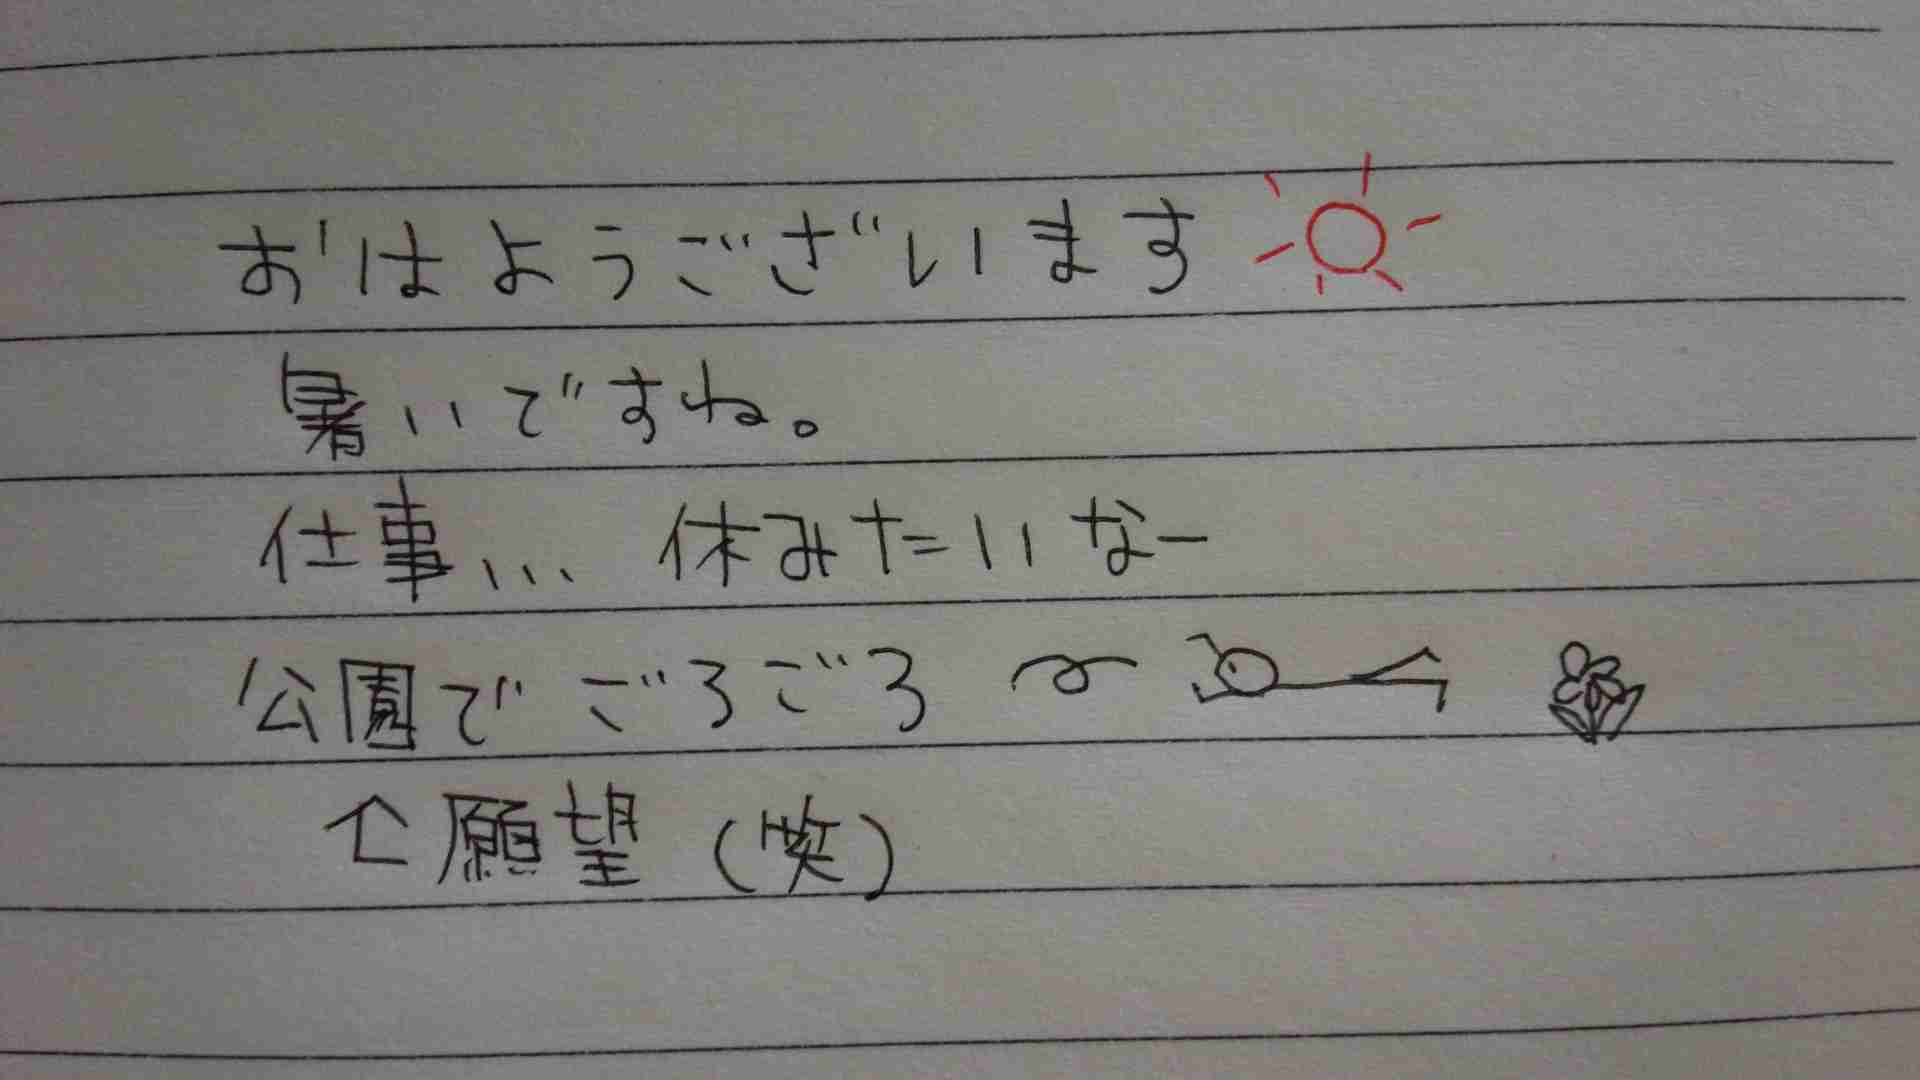 おはようございます
暑いですね。
仕事... 休みたいなー
公園でごろごろ
↑願望(笑)